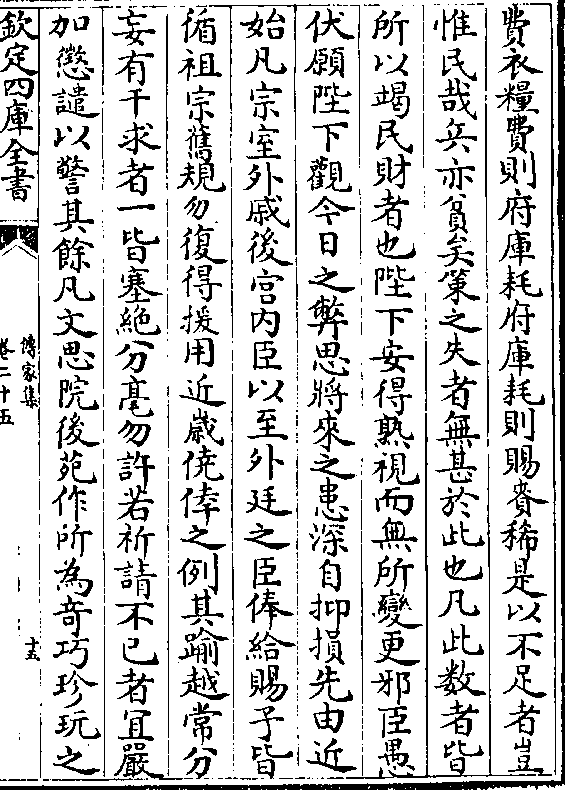 費衣糧費則府庫耗府庫耗則賜賚稀是以不足者豈
惟民哉兵亦貧矣策之失者無甚於此也凡此數者皆
所以竭民財者也陛下安得熟視而無所變更邪臣愚
伏願陛下觀今日之弊思將來之患深自抑損先由近
始凡宗室外戚後宫内臣以至外廷之臣俸給賜予皆
循祖宗舊規勿復得援用近歲僥倖之例其踰越常分
妄有干求者一皆塞絶分毫勿許若祈請不已者宜嚴
加懲譴以警其餘凡文思院後苑作所為奇巧珍玩之
欽定四庫全書
傳家集
卷二十五
十五